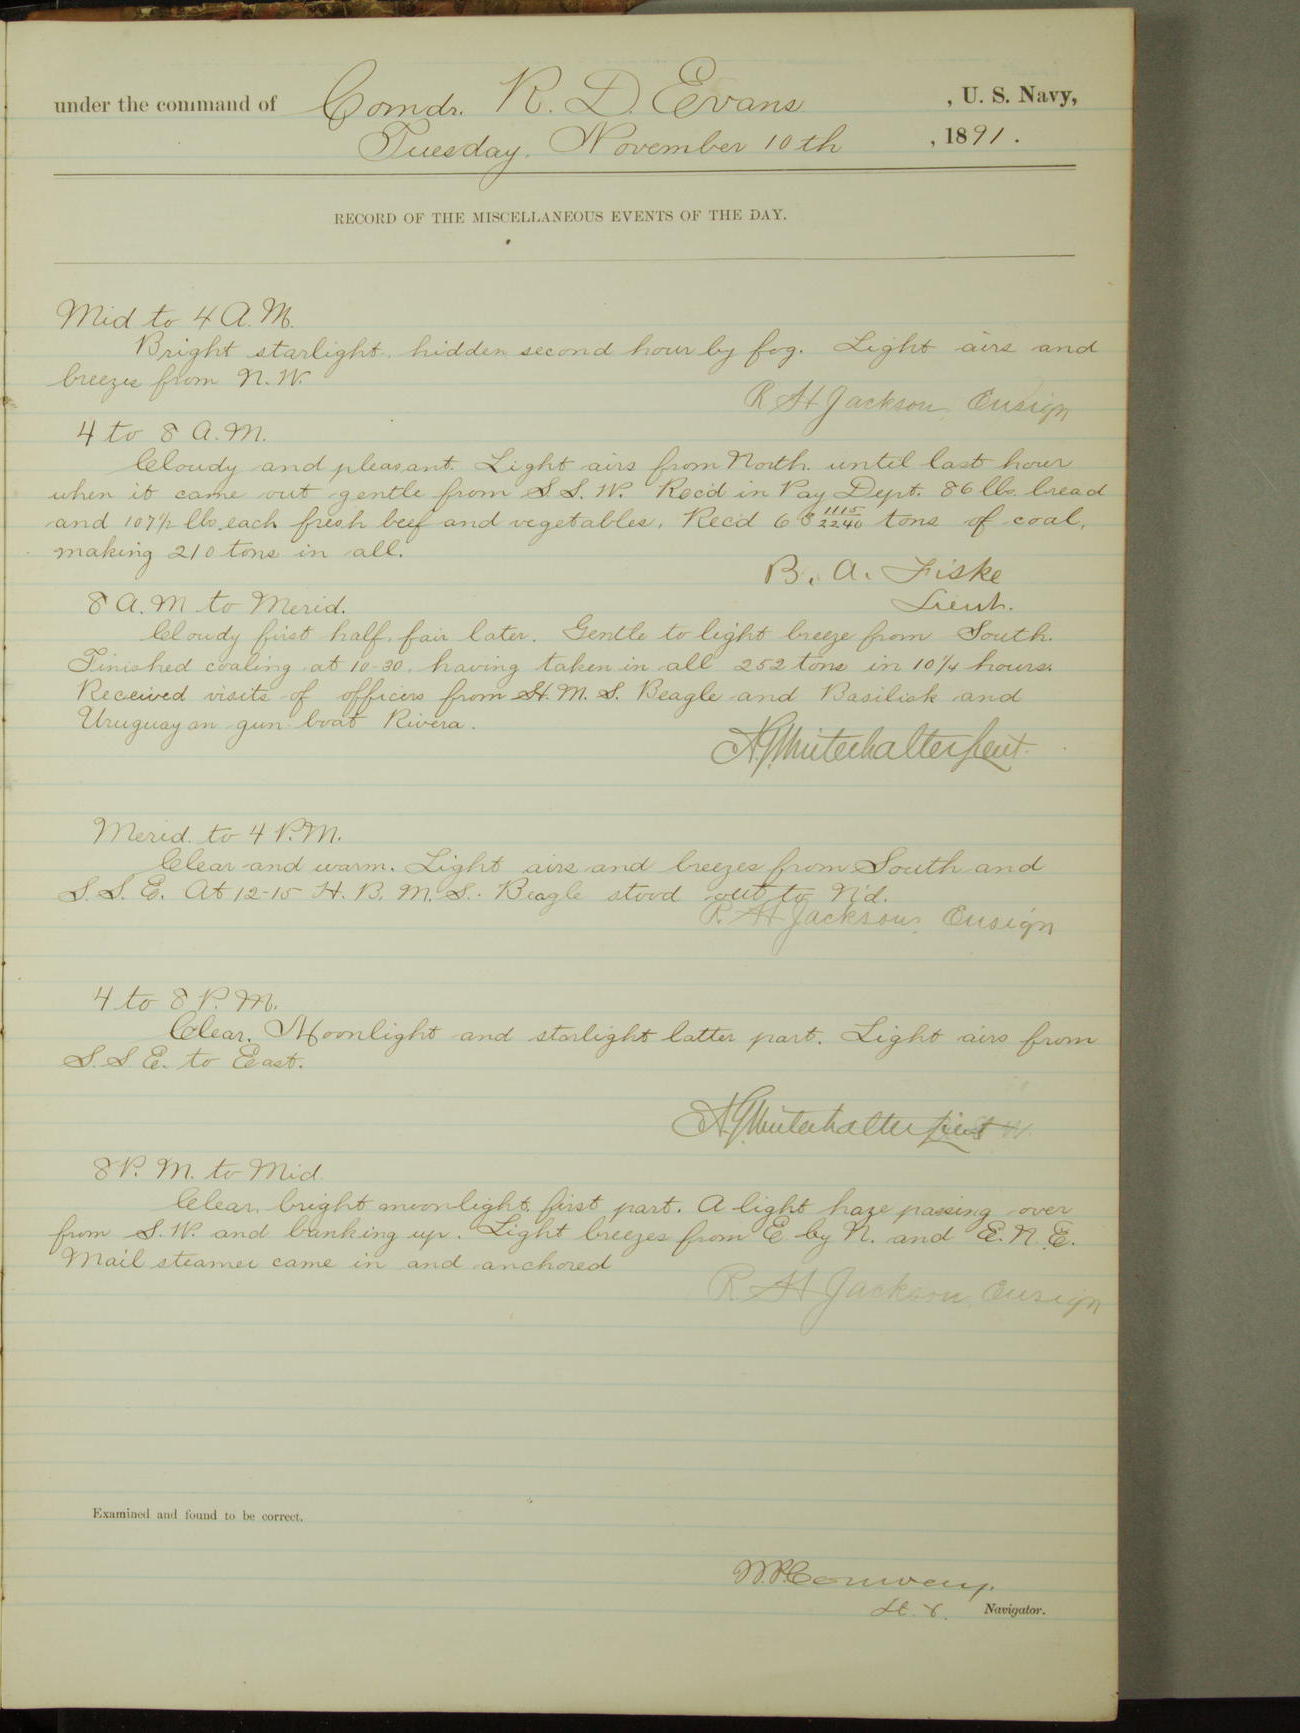 under the command of Comdr. R. D. Evans , U. S. Navy,
Tuesday, November 10th , 1891.
RECORD OF THE MISCELLANEOUS EVENTS OF THE DAY.
Mid to 4 A.M.
Bright starlight, hidden second hour by fog. Light airs and
breezes from N.W.
R H Jackson, Ensign
4 to 8 A.M.
Cloudy and pleasant. Light airs from North. until last hour
when it came out gentle from S.S.W. Rec'd in Pay Dept. 86 lbs. bread
and 107½ lbs. each fresh beef and vegetables. Rec'd 68 1115/2240 tons of coal,
making 210 tons in all.
B. A. Fiske
Lieut.
8 A.M. to Merid.
Cloudy first half, fair later. Gentle to light breeze from South.
Finished coaling at 10-30, having taken in all 252 tons in 10¼ hours.
Received visits of officers from H.M.S. Beagle and Basilisk and
Uruguayan gun-boat Rivera.
A G Winterhalter Lieut.
Merid. to 4 P.M.
Clear and warm. Light airs and breezes from South and
S.S.E. At 12-15 H.B.M.S. Beagle stood out to N'd.
R. H Jackson, Ensign
4 to 8 P.M.
Clear. Moonlight and starlight latter part. Light airs from
S.S.E. to East.
A G Winterhalter Lieut
8 P.M. to Mid.
Clear, bright moonlight first part. A light haze passing over
from S.W. and banking up. Light breezes from E by N. and E.N.E.
Mail steamer came in and anchored
R. H Jackson, Ensign
Examined and found to be correct.
W.P. Conway.
Navigator.